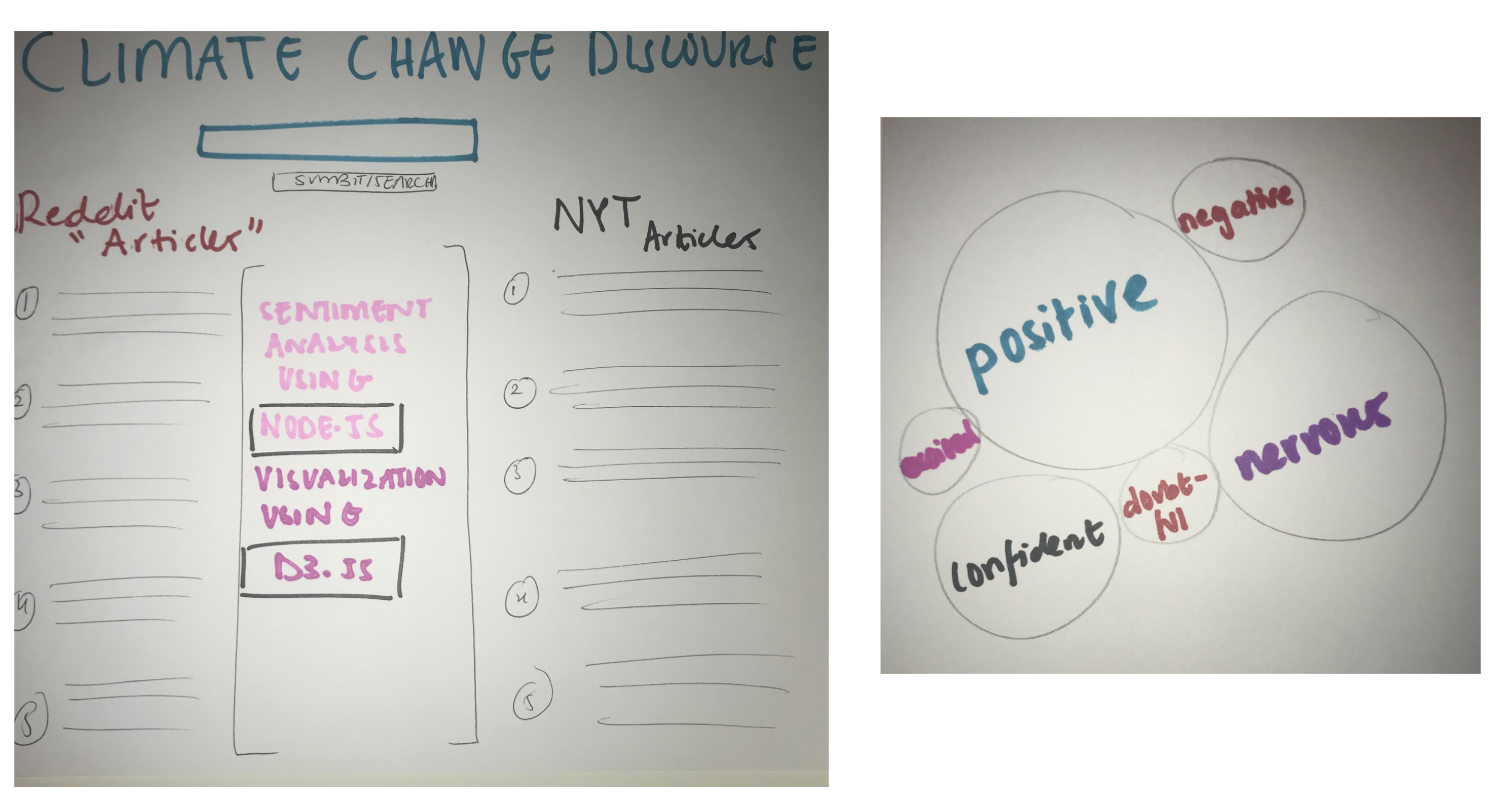 CLIMATE CHANGE DISCOURSE
SUMBIT/SEARCH
Reddit
"Articles"
NYT
Articles
1
2
3
4
5
SENTIMENT
ANALYSIS
USING
NODE.JS
VISUALIZATION
USING
D3.JS
1
2
3
4
5
negative
positive
nervous
doubt-
ful
confident